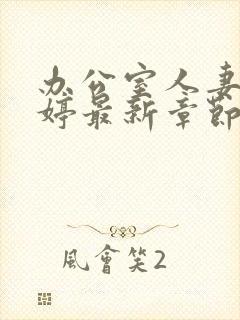 办公室人妻
婷最新章節
風會笑2